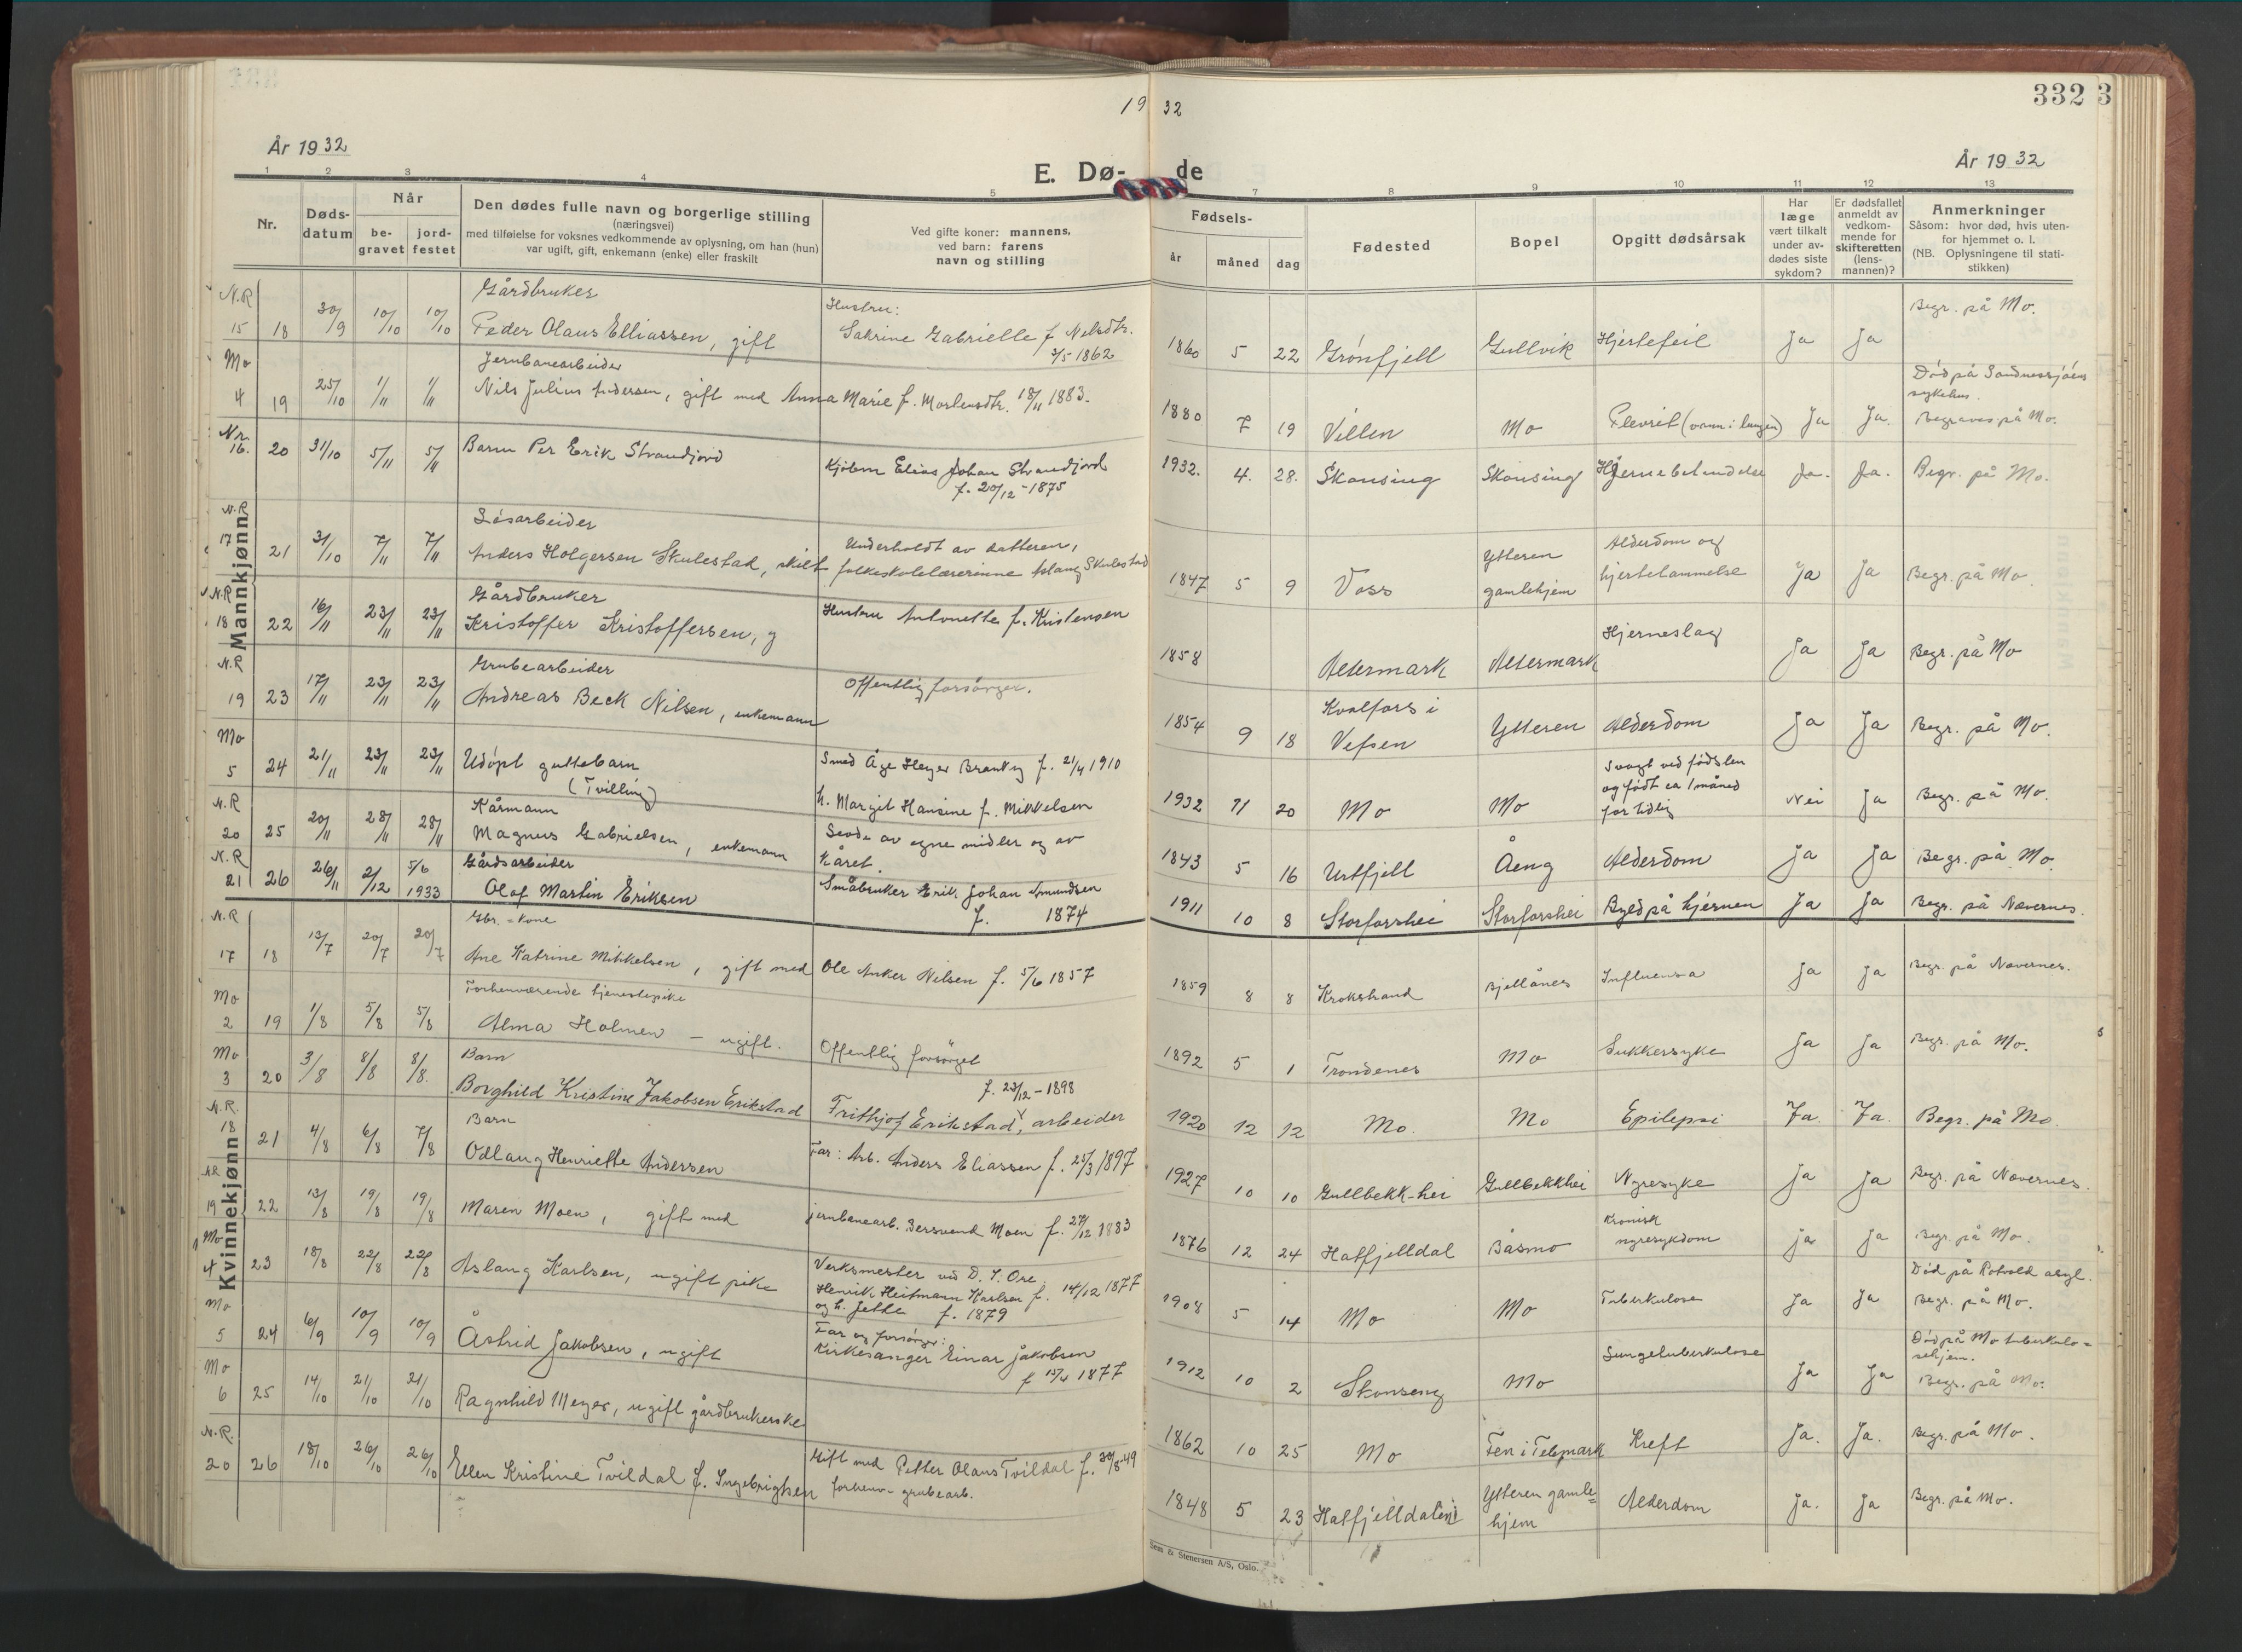 1932
332
3
År 1932
År 1932
E. Døde
1 2 3 4 5 7 8 9 10 11 12 13
Nr.
Døds-
datum
Når
be-
gravet
jord-
festet
Den dødes fulle navn og borgerlige stilling
(næringsvei)
med tilføielse for voksnes vedkommende av oplysning, om han (hun)
var ugift, gift, enkemann (enke) eller fraskilt
Ved gifte koner: mannens,
ved barn: farens
navn og stilling
Fødsels-
år
måned
dag
Fødested
Bopel
Opgitt dødsårsak
Har
læge
vært tilkalt
under av-
dødes siste
sykdom?
Er dødsfallet
anmeldt av
vedkom-
mende for
skifteretten
(lens-
mannen)?
Anmerkninger
Såsom: hvor død, hvis uten-
for hjemmet o. l.
(NB. Oplysningene til stati-
stikken)
Mannkjønn
N.R 15 18 30/9 10/10 10/10 Gårdbruker
Peder Olaus Elliassen, gift
Hustru:
Sakrine Gabrielle f. Nelsdtr.
3/5 1862
1860 5 22 Grønfjell Gullvik Hjertefeil Ja Ja Begr. på Mo.
Mo 4 19 25/10 1/11 1/11 Jernbanearbeider
Nils Julius Andersen, gift med Anna Marie f. Mortensdtr. 18/11 1883.
1880 7 19 Villen Mo Plevrit (vann i lungen) Ja Ja.
Død på Sandnessjøens
sykehus.
Begraves på Mo.
Nr. 16. 20 31/10 5/11 5/11 Barn Per Erik Strandjord
Kjøbm Elias Johan Strandjord
f. 20/12-1875
1932. 4. 28. Skonsing Skonsing Hjernebetendelse Ja. Ja. Begr. på Mo.
N.R 17 21 31/10 7/11 7/11 Løsarbeider
Anders Holgersen Skulestad, skilt
Underholdt av datteren,
folkeskolelærerinne Aslaug Skulestad
1847 5 9 Voss
Ytteren
gamlehjem
Alderdom og
hjertelammelse
Ja Ja Begr. på Mo.
N.R 18 22 16/11 23/11 23/11 Gårdbruker
Kristoffer Kristoffersen, g
Hustru Antonette f. Kristensen
1858 Altermark Altermark Hjerneslag Ja Ja Begr. på Mo
N.R 19 23 17/11 23/11 23/11 Grubearbeider
Andreas Beck Nilsen, enkemann
Offentlig forsørger.
1854 9 18 Kvalfors i
Vefsen
Ytteren Alderdom Ja Ja Begr. på Mo.
Mo 5 24 21/11 23/11 23/11 Udøpt guttebarn
(Tvilling)
Smed Åge Heyer f. 21/4 1910
h. Margit Hansine f. Mikkelsen
1932 11 20 Mo Mo
Svagt ved fødslen
og født ca 1 måned
for tidlig
Nei Ja Begr. på Mo.
N.R 20 25 20/11 28/11 28/11 Kårmann
Magnus Gabrielsen, enkemann
Levde av egne midler og av
kåret.
1843 5 16 Urtfjell Åeng Alderdom Ja Ja Begr. på Mo.
N.R 21 26 26/11 2/12 5/6 1933 Gårdsarbeider
Olaf Martin Eriksen
Småbruker Erik Johan Amundsen
f. 1874
1911 10 8 Storforshei Storforshei Byld på hjernen Ja Ja Begr. på Nævernes.
Kvinnekjønn
N.R 17 18 13/7 20/7 20/7 Gbr.-kone
Ane Katrine Mikkelsen, gift med Ole Anker Nilsen f. 5/6 1857
1859 8 8 Krokstrand Bjellånes Influensa Ja Ja Begr. på Nævernes.
Mo 2 19 1/8 5/8 5/8 Forhenværende tjenestepike
Alma Holmen - ugift.
Offentlig forsørget
1892 5 1 Trondenes Mo Sukkersyke Ja Ja Begr. på Mo.
Mo 3 20 3/8 8/8 8/8. Barn
Borghild Kristine Jakobsen Erikstad
f. 23/12-1898
Frithjof Erikstad, arbeider
1920 12 12 Mo. Mo Epilepsi Ja. Ja. Begr. på Mo.
N.R. 18 21 4/8 6/8 7/8 Barn
Odlaug Henriette Andersen
Far: Arb. Anders Eliassen f. 25/3 1897
1927 10 10 Gullbekk-hei Gullbekkhei Nyresyke Ja Ja Begr. på Nævernes.
N.R. 19 22 13/8 19/8 19/8 Maren Moen, gift med
jernbanearb. Bersvend Moen f. 27/12 1883
1876 12 24 Hatfjelldal Båsmo
Kronisk
nyresykdom
ja Ja Begr. på Mo.
Mo 4 23 18/8 22/8 22/8 Aslaug Karlsen, ugift pike
Verksmester ved D. I. Ore.
Henrik Heitmann Karlsen f. 14/12 1877
og h. Jette f. 1879
1908 5 14 Mo Mo Tuberkulose Ja Ja
Død på Rotvold asyl.
Begr. på Mo.
Mo 5 24 6/9 10/9 10/9 Åstrid Jakobsen, ugift
Far og forsørger:
Kirkesanger Einar Jakobsen
f 15/4 1877
1912 10 2 Skonseng Mo Lungetuberkulose Ja Ja
Død på Mo tuberkulo-
sehjem.
Begr. på Mo.
Mo 6 25 14/10 21/10 21/10 Ragnhild Meyer, ugift gårdbrukerske
1862 10 25 Mo Fen i Telemark Kreft Ja. Ja. Begr. på Mo.
N.R. 20 26 18/10 26/10 26/10 Ellen Kristine Tvildal f. Ingebrigtsen
Gift med Petter Olaus Tvildal f. 30/8 49
forhenv. grubearb.
1848 5 23 Hatfjelldalen
Ytteren gamle-
hjem
Alderdom Ja. Ja Begr. på Mo.
Sem & Stenersen A/S, Oslo.